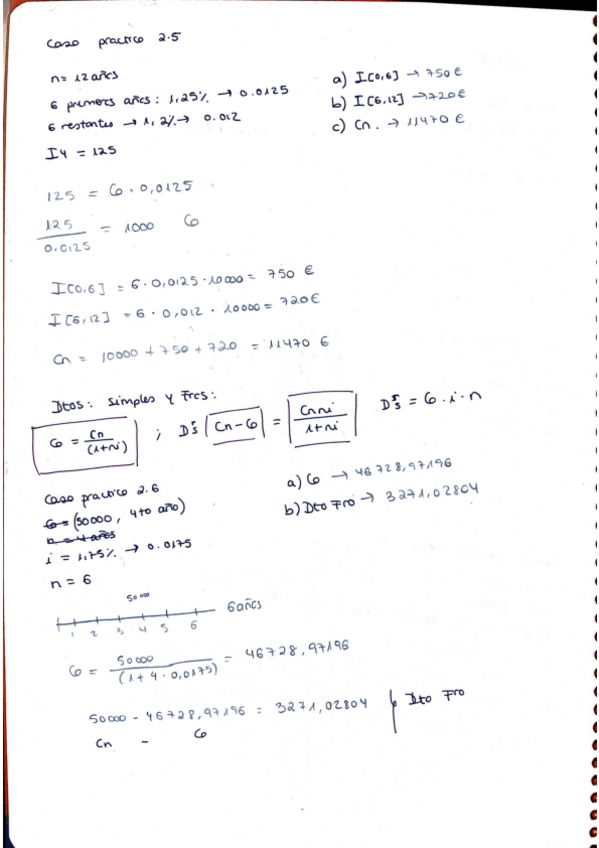 Caso practico 2.5
n= 12 años
6 primeros años: 1,25% → 0.0125
6 restantes → 1,2% → 0.012
I4 = 125
a) I[0,6] → 750 €
b) I[6,12] → 720€
c) Cn. → 11470 €
125 = C0 · 0,0125
125 / 0.0125 = 1000 C0
I[0,6] = 6 · 0,0125 · 10000 = 750 €
I[6,12] = 6 · 0,012 · 10000 = 720€
Cn = 10000 + 750 + 720 = 11470 €
Dtos: simples y Fres:
C0 = Cn / (1+ni) ; Drs Cn - C0 = Cnni / 1+ni Drs = C0 · i · n
Caso practico 2.6
C0 = (50000, 4to año)
n = 4 años
i = 1,75% → 0.0175
n = 6
a) C0 → 46728,97196
b) Dto Fro → 3271,02804
50000
1 2 3 4 5 6 6 años
C0 = 50000 / (1 + 4 · 0,0175) = 46728,97196
50000 - 46728,97196 = 3271,02804 Dto Fro
Cn - C0